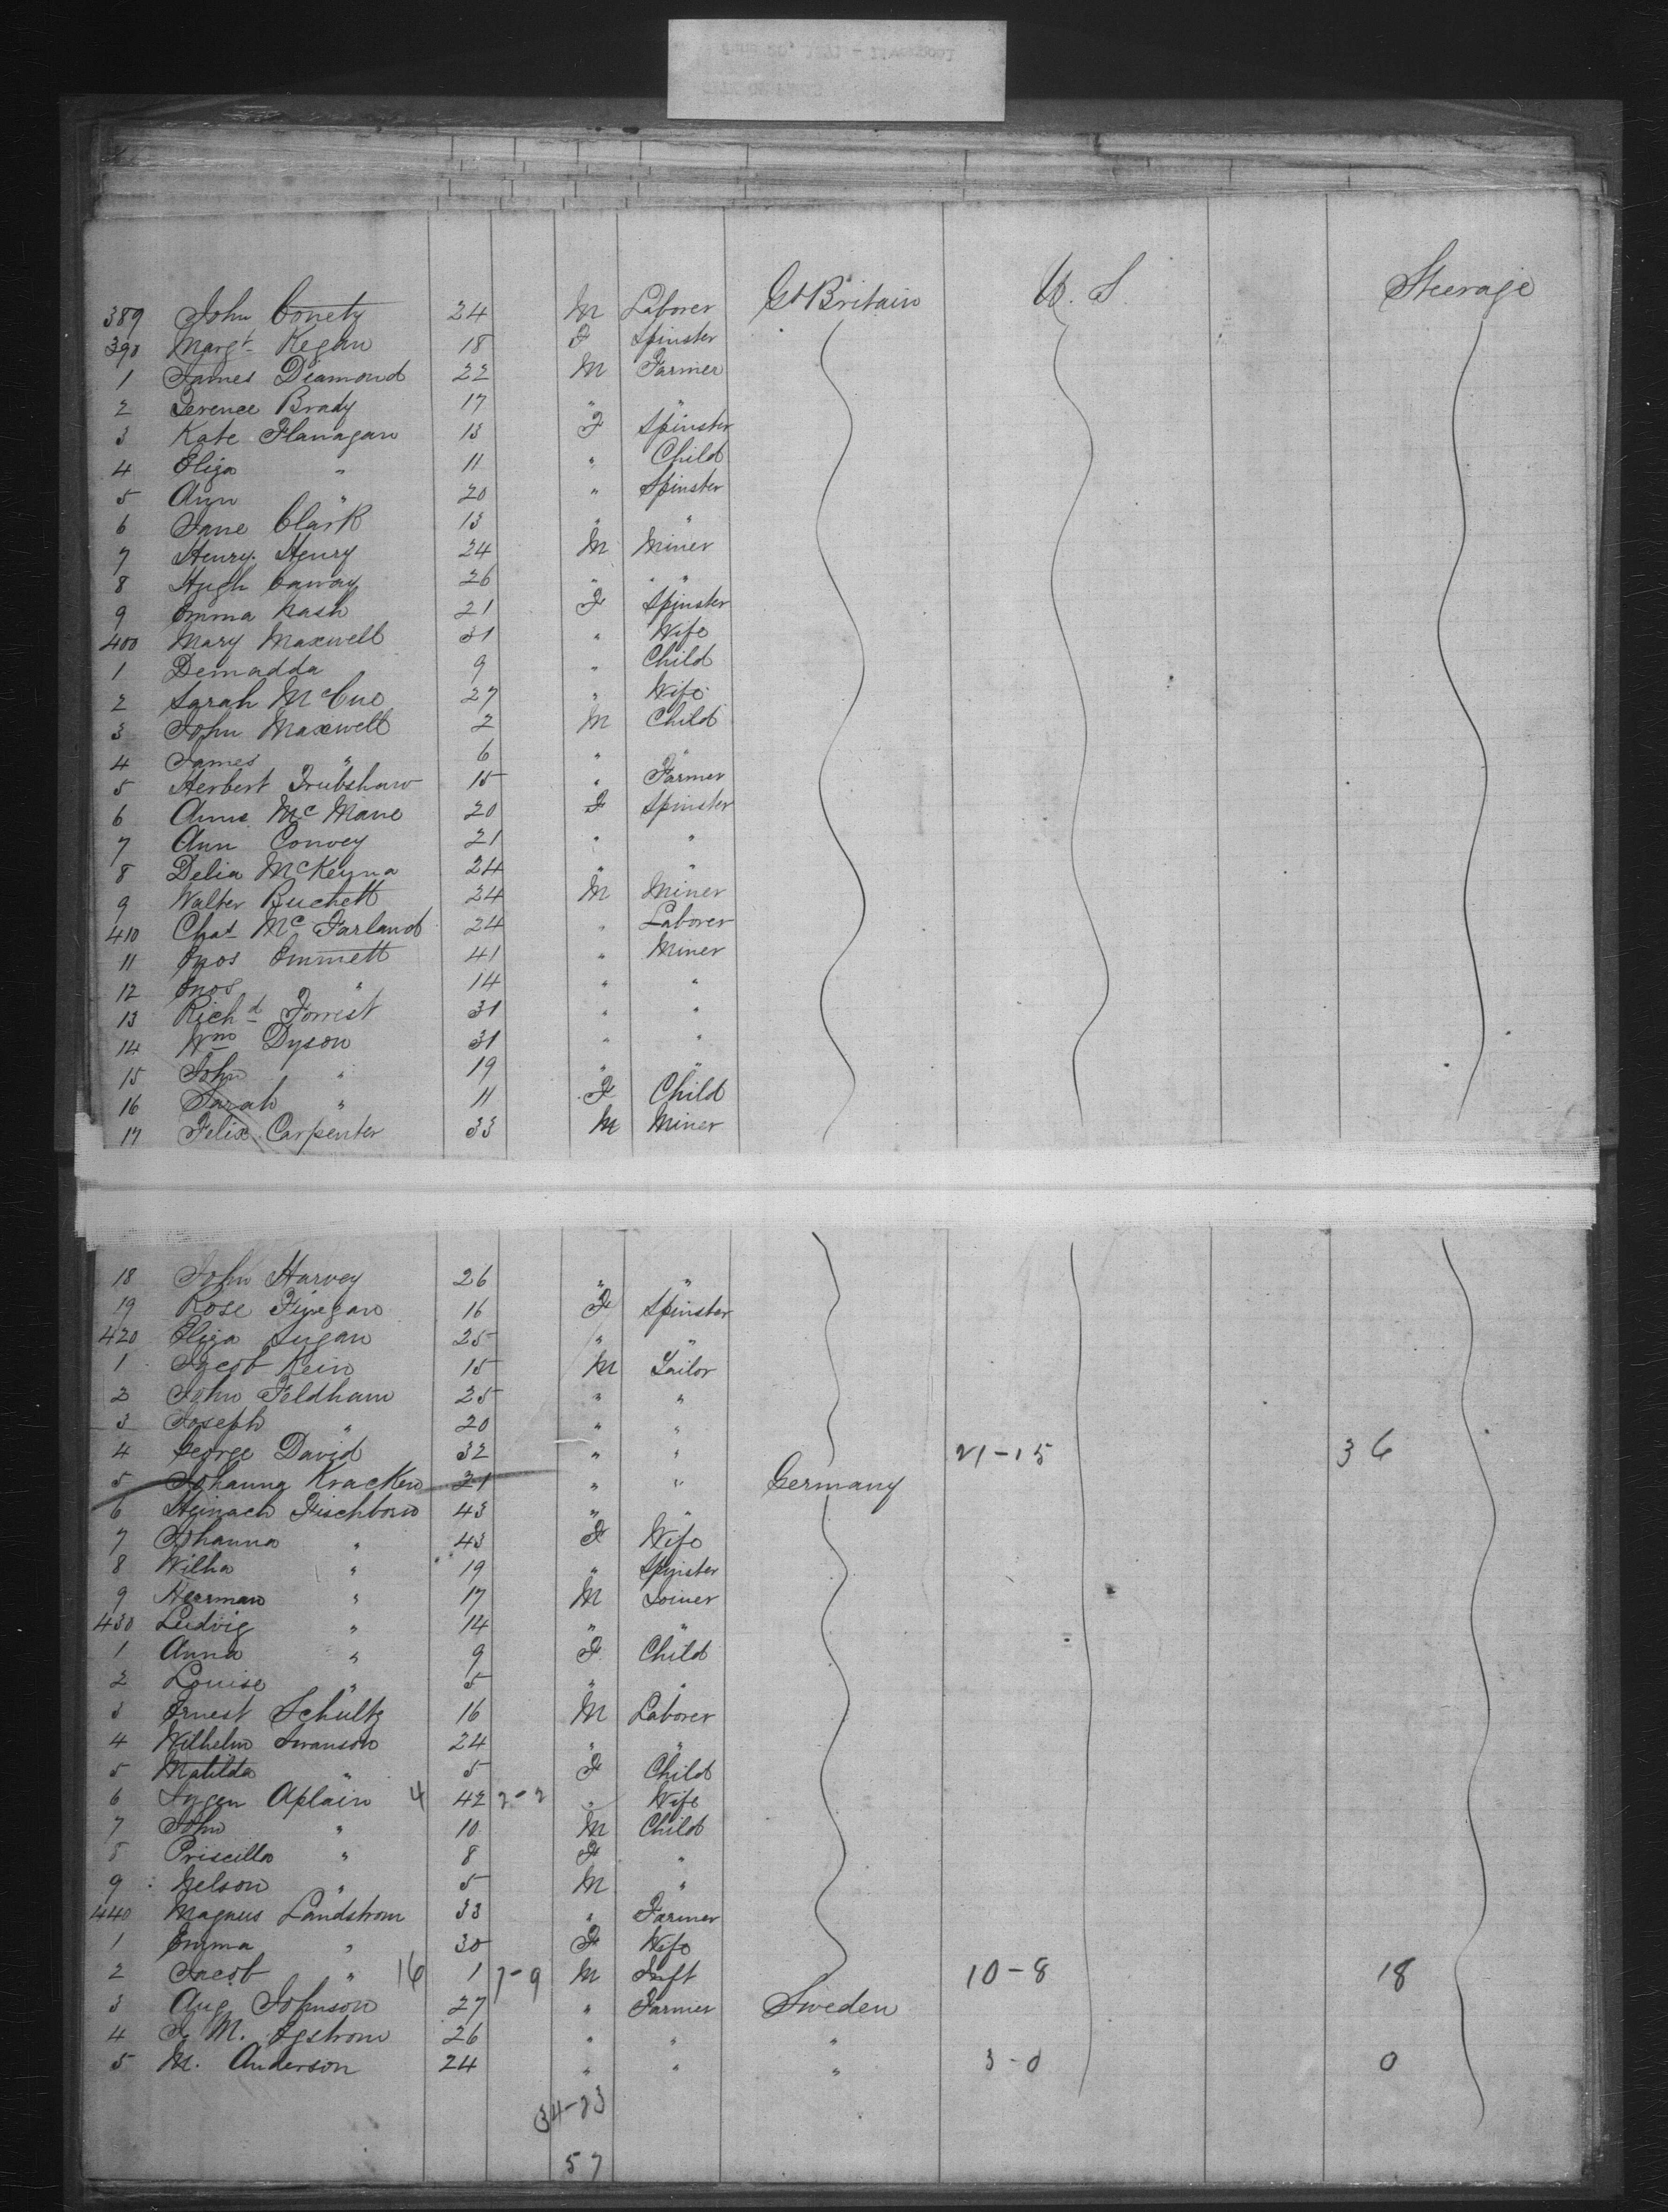 389 John Conety 24 M Laborer Gt Britain U. S. Steerage
390 Margt Regan 18 F Spinster
1 James Diamond 22 M Farmer
2 Terence Brady 17 " "
3 Kate Flanagan 13 F Spinster
4 Eliza " 11 " Child
5 Ann " 20 " Spinster
6 Jane Clark 13 " "
7 Henry Henry 24 M Miner
8 Hugh 26 " "
9 Emma Nash 21 F Spinster
400 Mary Maxwell 31 " Wife
1 Demadda 9 " Child
2 Sarah McCue 27 " Wife
3 John Maxwell 2 M Child
4 James " 6 " "
5 Herbert Trubshaw 15 " Farmer
6 Anne McMane 20 F Spinster
7 Ann Convey 21 " "
8 Delia McKenna 24 " "
9 Walter Buchett 24 M Miner
410 Chas McFarland 24 " Laborer
11 Enos Emmett 41 " Miner
12 Enos " 14 " "
13 Richd Forrest 31 " "
14 Wm Dyson 31 " "
15 John " 19 " "
16 Sarah " 11 F Child
17 Felix Carpenter 33 M Miner
18 John Harvey 26 " "
19 Rose Finegan 16 F Spinster
420 Eliza Sugan 25 " "
1 Jacob Kein 15 M Tailor
2 John Feldham 25 " "
3 Joseph " 20 " "
4 George David 32 " " 21-15 36
5 Johanna Kracken 21 " " Germany
6 Heinach Fischborn 43 " "
7 Johanna " 43 F Wife
8 Wilha " 19 " Spinster
9 Herrman " 17 M Joiner
430 Ludvig " 14 " "
1 Anna " 9 F Child
2 Louise " 5 " "
3 Ernest Schultz 16 M Laborer
4 Wilhelm Swanson 24 " "
5 Matilda " 5 F Child
6 Aplain 4 42 2-2 " Wife
7 John " 10 M Child
8 Priscilla " 8 F "
9 Nelson " 5 M "
440 Magnus Landstrom 33 " Farmer
1 Emma " 30 F Wife
2 Jacob " 16 1 7-9 M Inft 10-8 18
3 Aug Johnson 27 " Farmer Sweden
4 J. M. Egstrom 26 " " "
5 M. Anderson 24 " " " 3-0 0
34-23
57